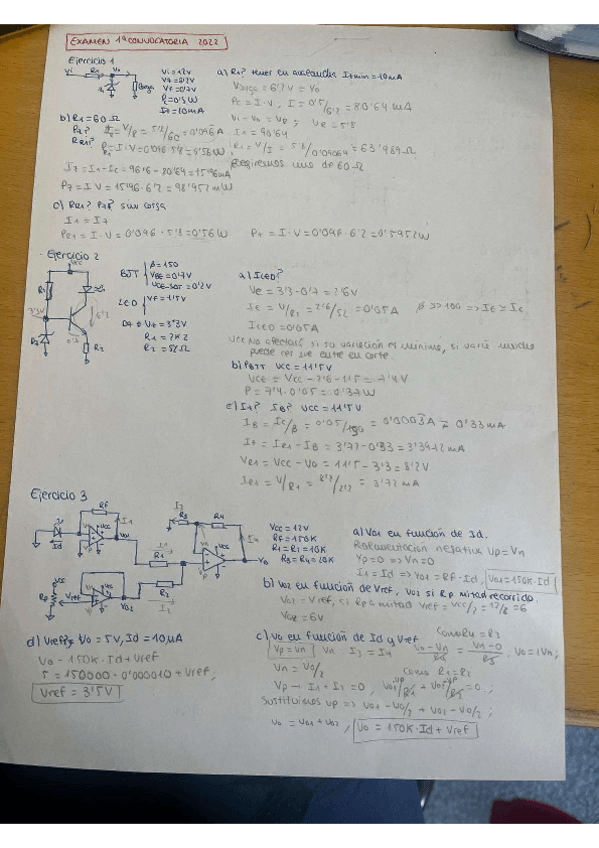 EXAMEN 1ª CONVOCATORIA 2022
Ejercicio 1
Vi R1 Vo
Vi=12V
VF=0'7V
Pc=0'5W
Iz=10mA
a) R1? tener en avalancha Izmin=10mA
Vcarga=6'2V = Vo
Pc = I·V , I = 0'5/6'2 = 80'64 mA
Vi - Vo = VR ; VR = 5'8
I1 = 90'64
R1 = V/I = 5'8/0'09064 = 63'989Ω
b) R1=60Ω
Pz?
PR1?
I = V/R = 5'8/60 = 0'096A
P = I·V = 0'096·5'8 = 0'56W
Iz = I1 - Ic = 96'6 - 80'64 = 15'96mA
Pz = I·V = 15'96·6'2 = 98'952 mW
c) PR1? Pz? sin carga
I1 = Iz
PR1 = I·V = 0'096·5'8 = 0'56W
Pz = I·V = 0'096·6'2 = 0'5952W
Ejercicio 2
Vcc
R1
3'3V
R2
BJT
β=150
VBE=0'7V
VCE-sat=0'2V
LED
VF=1'5V
Vz=3'3V
R1 = 2K2
R2 = 52Ω
a) ILED?
Ve = 3'3-0'7 = 2'6V
IE = V/R2 = 2'6/52 = 0'05A
β >> 100 => IE ≃ Ic
ILED=0'05A
Vcc no afectará si su variación es mínima, si varía mucho
puede ser que entre en corte.
b) PBJT Vcc=11'5V
VCE = Vcc - 2'6 - 1'5 = 7'4V
P = 7'4·0'05 = 0'37W
c) Iz? IB? Vcc=11'5V
IB = Ic/β = 0'05/150 = 0'0003A ≃ 0'33mA
Iz = IR1 - IB = 3'72 - 0'33 = 3'3942 mA
VR1 = Vcc - Vo = 11'5 - 3'3 = 8'2V
IR1 = V/R1 = 8'2/2'2 = 3'72 mA
Ejercicio 3
RF
Id
Vo1
R3
R4
R1
R2
Rp
Vref
Vo2
Vo
Vcc = 12V
RF = 150K
R1=R2=10K
R3=R4=20K
a) Vo1 en función de Id.
Realimentación negativa Vp=Vn
Vp=0 => Vn=0
I1 = Id => Vo1 = RF·Id , Vo1=150K·Id
b) Vo2 en función de Vref, Vo2 si Rp mitad recorrido.
Vo2 = Vref, si Rp a mitad Vref = Vcc/2 = 12/2 = 6
Vo2 = 6V
c) Vo en función de Id y Vref
Como R4=R3
Vp=Vn
I3 = I4
Vo=2Vn;
Vn = Vo/2
Como R1=R2
Vp → I1 + I2 = 0
Sustituimos Vp => Vo1 - Vo/2 + Vo2 - Vo/2 ;
Vo = Vo1 + Vo2, Vo = 150K·Id + Vref
d) Vref? Vo = 5V, Id = 10μA
Vo = 150K·Id + Vref
5 = 150000·0'000010 + Vref;
Vref = 3'5V